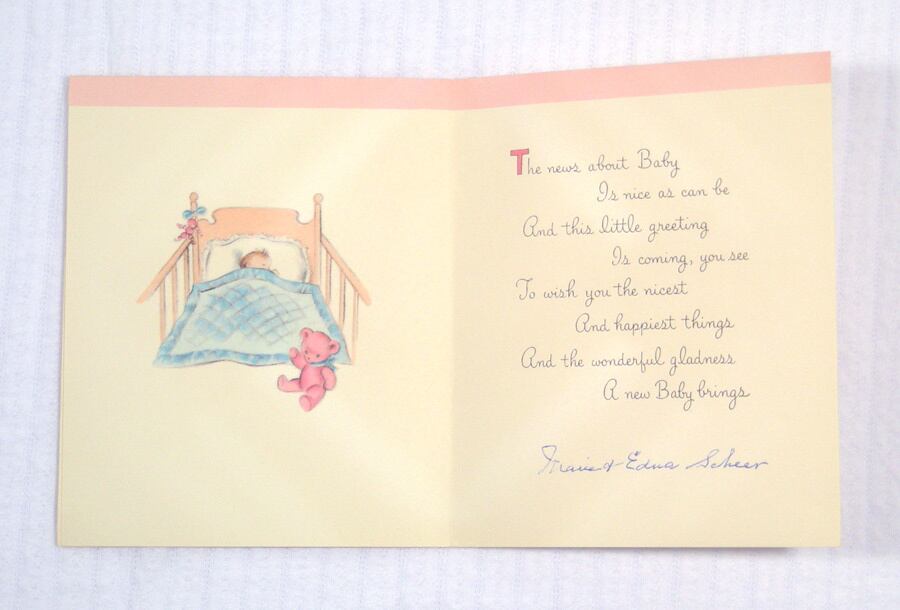 The news about Baby
Is nice as can be
And this little greeting
Is coming, you see
To wish you the nicest
And happiest things
And the wonderful gladness
A new Baby brings
Marie & Edna Scheer